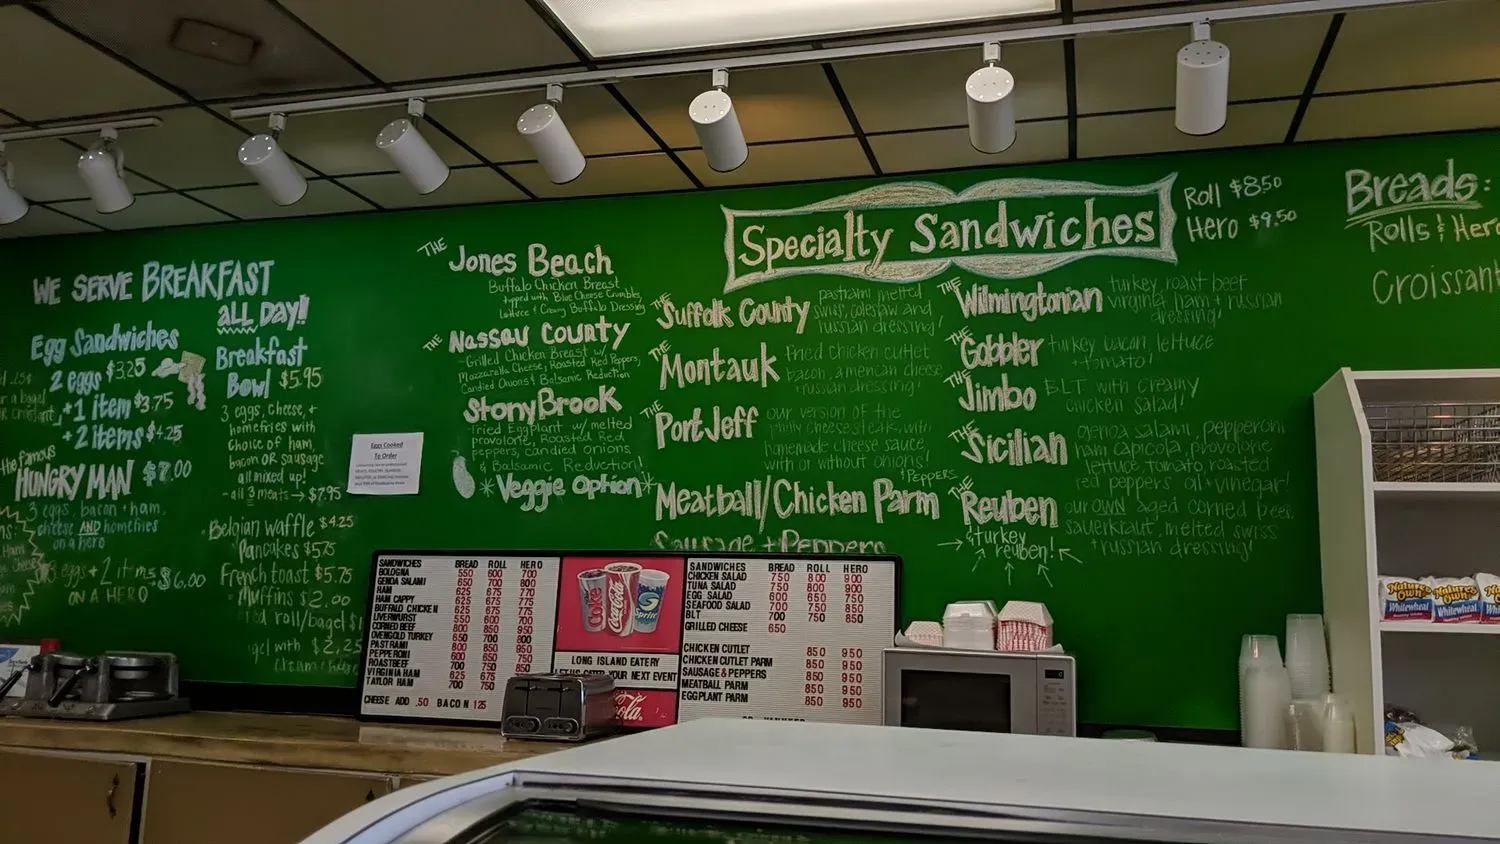 WE SERVE BREAKFAST
ALL DAY!!
Egg Sandwiches
2 eggs $3.25
+1 item $3.75
+2 items $4.25
the famous
HUNGRY MAN $7.00
3 eggs, bacon + ham,
cheese AND homefries
on a hero
eggs + 2 items $6.00
ON A HERO
Breakfast
Bowl $5.95
3 eggs, cheese, +
homefries with
choice of ham,
bacon OR sausage
all mixed up!
- all 3 meats → $7.95
Belgian waffle $4.25
Pancakes $5.75
French toast $5.75
Muffins $2.00
roll/bagel $1
gel with $2.25
Eggs Cooked
To Order
THE
Jones Beach
Buffalo Chicken Breast
topped with Blue Cheese Crumbles,
Lettuce + Creamy Buffalo Dressing
THE
Nassau County
Grilled Chicken Breast w/
Mozzarella Cheese, Roasted Red Peppers,
Candied Onions & Balsamic Reduction
Stony Brook
Fried Eggplant w/ melted
provolone, Roasted Red
peppers, candied onions
& Balsamic Reduction!
*Veggie Option*
Specialty Sandwiches
Roll $8.50
Hero $9.50
THE
Suffolk County
pastrami, melted
swiss, coleslaw and
russian dressing!
THE
Montauk
Fried chicken cutlet
bacon, american cheese
+ russian dressing!
THE
Port Jeff
our version of the
philly cheesesteak, with
homemade cheese sauce,
with or without onions!
Meatball/Chicken Parm
Peppers
Sausage + Peppers
THE
Wilmingtonian
turkey, roast beef
virginia ham + russian
dressing!
THE
Gobbler
turkey, bacon, lettuce
+ tomato!
THE
Jimbo
BLT with creamy
chicken salad!
THE
Sicilian
Genoa salami, pepperoni
ham capicola, provolone
lettuce, tomato, roasted
red peppers, oil + vinegar!
THE
Reuben
our own aged corned beef,
sauerkraut, melted swiss
+ russian dressing!
→ *turkey
reuben!
Breads:
Rolls & Hero
Croissant
SANDWICHES BREAD ROLL HERO
BOLOGNA 550 600 700
GENOA SALAMI 650 700 800
HAM 625 675 770
HAM CAPPY 625 675 775
BUFFALO CHICKEN 625 675 775
LIVERWURST 550 600 700
CORNED BEEF 800 850 950
OVENGOLD TURKEY 650 700 800
PASTRAMI 800 850
PEPPERONI 600 650 750
ROASTBEEF 700 750 850
VIRGINIA HAM 625 675
TAYLOR HAM 700 750
CHEESE ADD .50 BACON 125
Coke
Coca-Cola
Sprite
LONG ISLAND EATERY
LET US CATER YOUR NEXT EVENT
SANDWICHES BREAD ROLL HERO
CHICKEN SALAD 750 800 900
TUNA SALAD 750 800 900
EGG SALAD 600 650 750
SEAFOOD SALAD 700 750 850
BLT 700 750 850
GRILLED CHEESE 650
CHICKEN CUTLET 850 950
CHICKEN CUTLET PARM 850 950
SAUSAGE & PEPPERS 850 950
MEATBALL PARM 850 950
EGGPLANT PARM 850 950
Nature's Own
Whitewheat
Nature's Own
Whitewheat